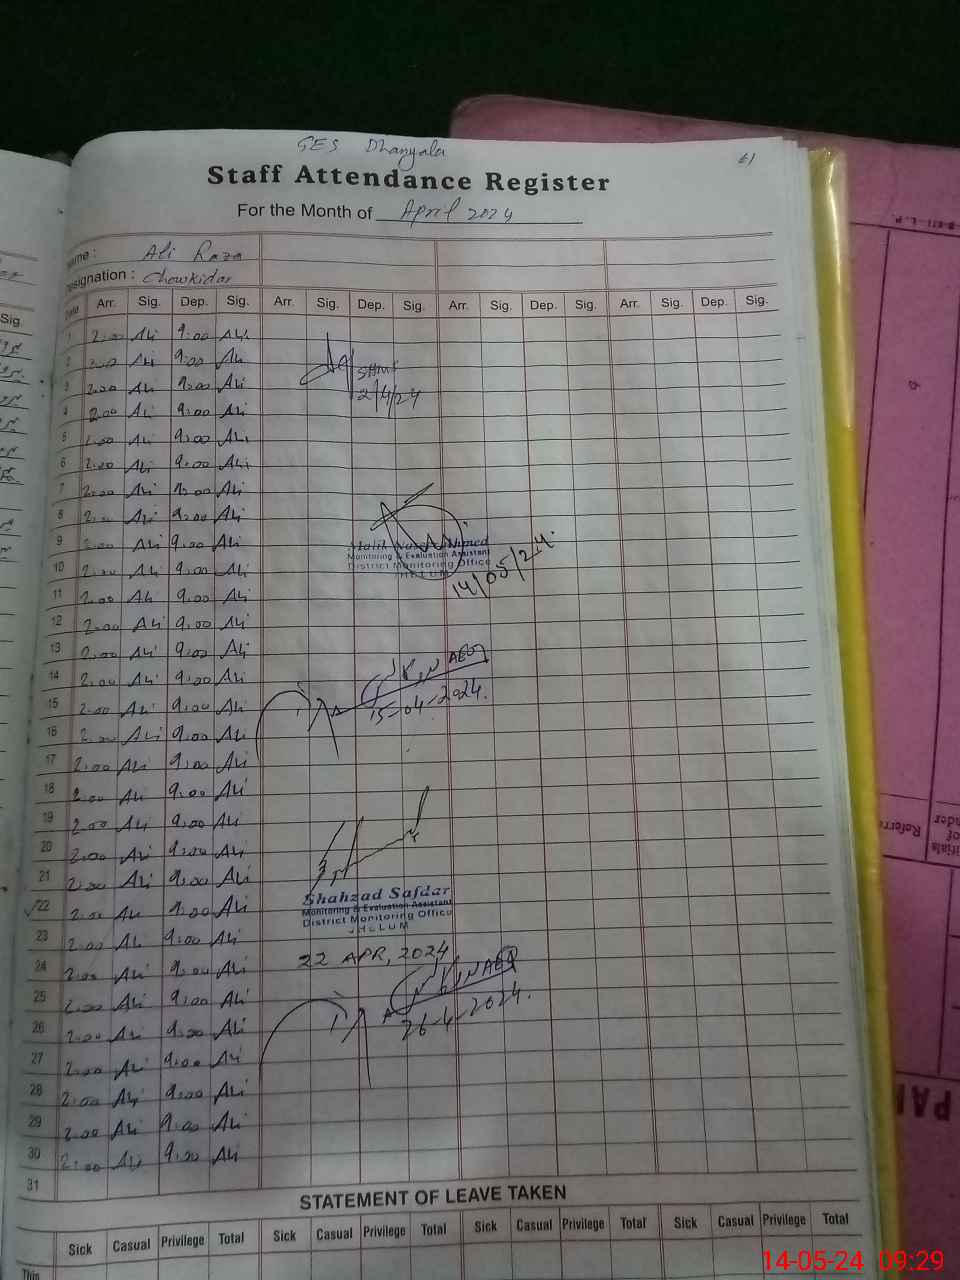 GES Dhanyala
61
Staff Attendance Register
For the Month of April 2024
Name : Ali Raza
Designation : Chowkidar
Date Arr. Sig. Dep. Sig. Arr. Sig. Dep. Sig. Arr. Sig. Dep. Sig. Arr. Sig. Dep. Sig.
1 2:00 Ali 9:00 Ali
2 2:00 Ali 9:00 Ali
3 2:00 Ali 9:00 Ali
2/4/24
4 2:00 Ali 9:00 Ali
5 2:00 Ali 9:00 Ali
6 2:00 Ali 9:00 Ali
7 2:00 Ali 9:00 Ali
8 2:00 Ali 9:00 Ali
9 2:00 Ali 9:00 Ali
Malik Ahmed
Monitoring & Evaluation Assistant
District Monitoring Office
JHELUM
14/05/24
10 2:00 Ali 9:00 Ali
11 2:00 Ali 9:00 Ali
12 2:00 Ali 9:00 Ali
13 2:00 Ali 9:00 Ali
14 2:00 Ali 9:00 Ali
AEO
15 2:00 Ali 9:00 Ali
15-04-2024.
16 2:00 Ali 9:00 Ali
17 2:00 Ali 9:00 Ali
18 2:00 Ali 9:00 Ali
19 2:00 Ali 9:00 Ali
20 2:00 Ali 9:00 Ali
21 2:00 Ali 9:00 Ali
22 2:00 Ali 9:00 Ali
Shahzad Safdar
Monitoring & Evaluation Assistant
District Monitoring Office
JHELUM
23 2:00 Ali 9:00 Ali
22 APR, 2024
24 2:00 Ali 9:00 Ali
AEO
25 2:00 Ali 9:00 Ali
26-4-2024.
26 2:00 Ali 9:00 Ali
27 2:00 Ali 9:00 Ali
28 2:00 Ali 9:00 Ali
29 2:00 Ali 9:00 Ali
30 2:00 Ali 9:00 Ali
31
STATEMENT OF LEAVE TAKEN
Sick Casual Privilege Total Sick Casual Privilege Total Sick Casual Privilege Total Sick Casual Privilege Total
This
Sig.
Referre
PAR
14-05-24 09:29